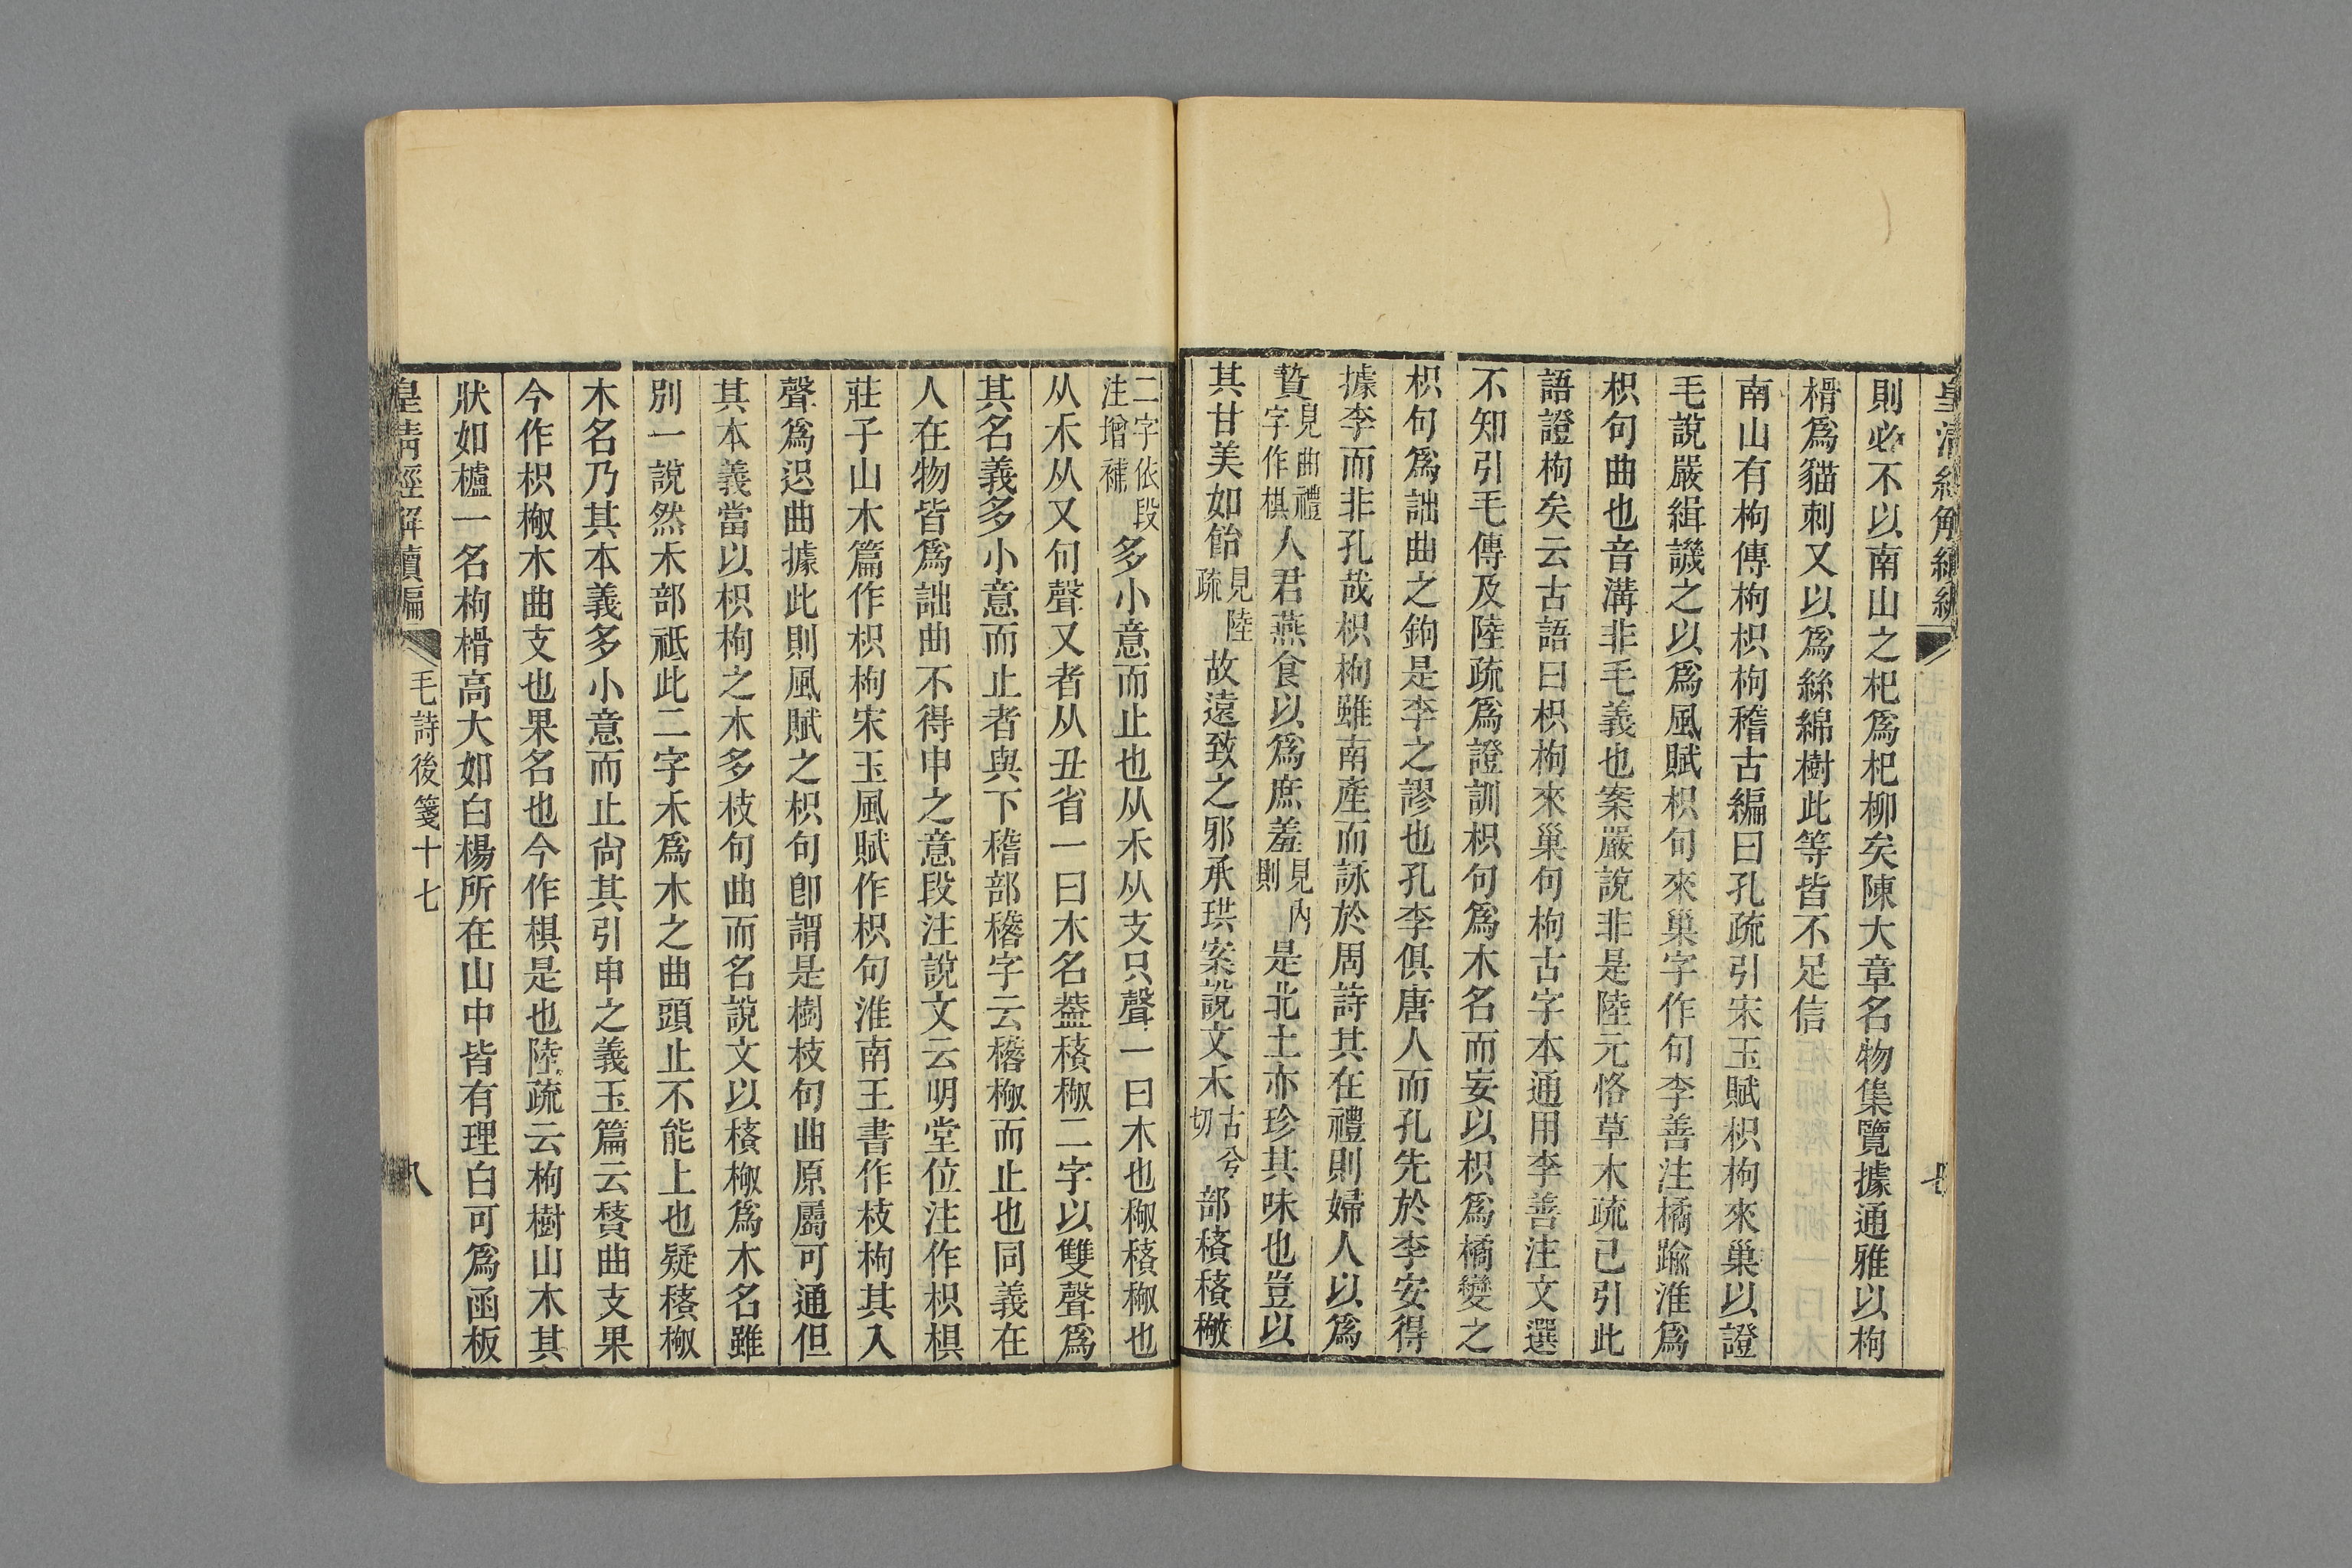 皇清經解續編
則必不以南山之杞爲杞柳矣陳大章名物集覽據通雅以枸
榾爲貓刺又以爲絲綿樹此等皆不足信
南山有枸傳枸枳枸稽古編曰孔疏引宋玉賦枳枸來巢以證
毛說嚴緝譏之以爲風賦枳句來巢字作句李善注橘踰淮爲
枳句曲也音溝非毛義也案嚴說非是陸元恪草木疏已引此
語證枸矣云古語曰枳枸來巢句枸古字本通用李善注文選
不知引毛傳及陸疏爲證訓枳句爲木名而妄以枳爲橘變之
枳句爲詘曲之鉤是李之謬也孔李俱唐人而孔先於李安得
據李而非孔哉枳枸雖南產而詠於周詩其在禮則婦人以爲
贄見曲禮字作椇人君燕食以爲庶羞見內則是北土亦珍其味也豈以
其甘美如飴見陸疏故遠致之邪承珙案說文禾古兮切部䅩䅩𥝋
二字依段注增補多小意而止也从禾从支只聲一曰木也𥝋䅩𥝋也
从禾从又句聲又者从丑省一曰木名蓋䅩𥝋二字以雙聲爲
其名義多小意而止者與下稽部䅵字云䅵𥝋而止也同義在
人在物皆爲詘曲不得申之意段注說文云明堂位注作枳椇
莊子山木篇作枳枸宋玉風賦作枳句淮南王書作枝枸其入
聲爲迟曲據此則風賦之枳句卽謂是樹枝句曲原屬可通但
其本義當以枳枸之木多枝句曲而名說文以䅩𥝋爲木名雖
別一說然禾部祗此二字禾爲木之曲頭止不能上也疑䅩𥝋
木名乃其本義多小意而止尙其引申之義玉篇云䅩曲支果
今作枳椒木曲支也果名也今作椇是也陸疏云枸樹山木其
狀如櫨一名枸榾高大如白楊所在山中皆有理白可爲函板
皇清經解續編
毛詩後箋十七
八